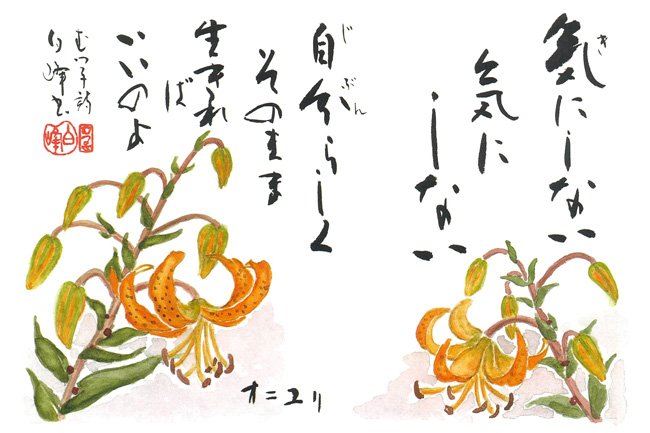 氣にしない
気に
しない
自分らしく
そのまま
生きれ
ば
いいのよ
むつ子詩
白峰書
オニユリ